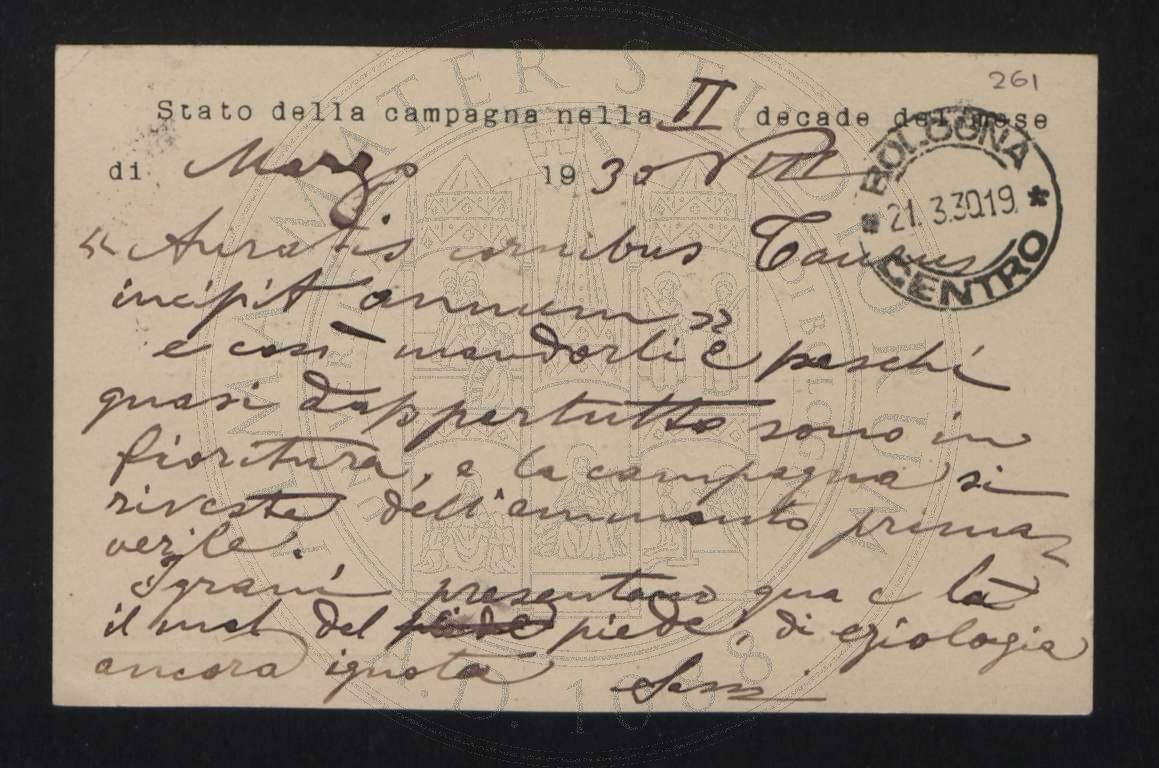 261
Stato della campagna nella II decade del mese
di Marzo 1930 VIII
BOLOGNA
* 21. 3.30.19 *
CENTRO
« Auratis cornibus Taurus
incipit annum »
e così mandorli e peschi
quasi dappertutto sono in
fioritura, e la campagna si
riveste dell'ammanto prima-
verile.
I grani presentano qua e là
il mal del piede, di eziologia
ancora ignota
ALMA MATER STUDIORUM
A.D. 1088